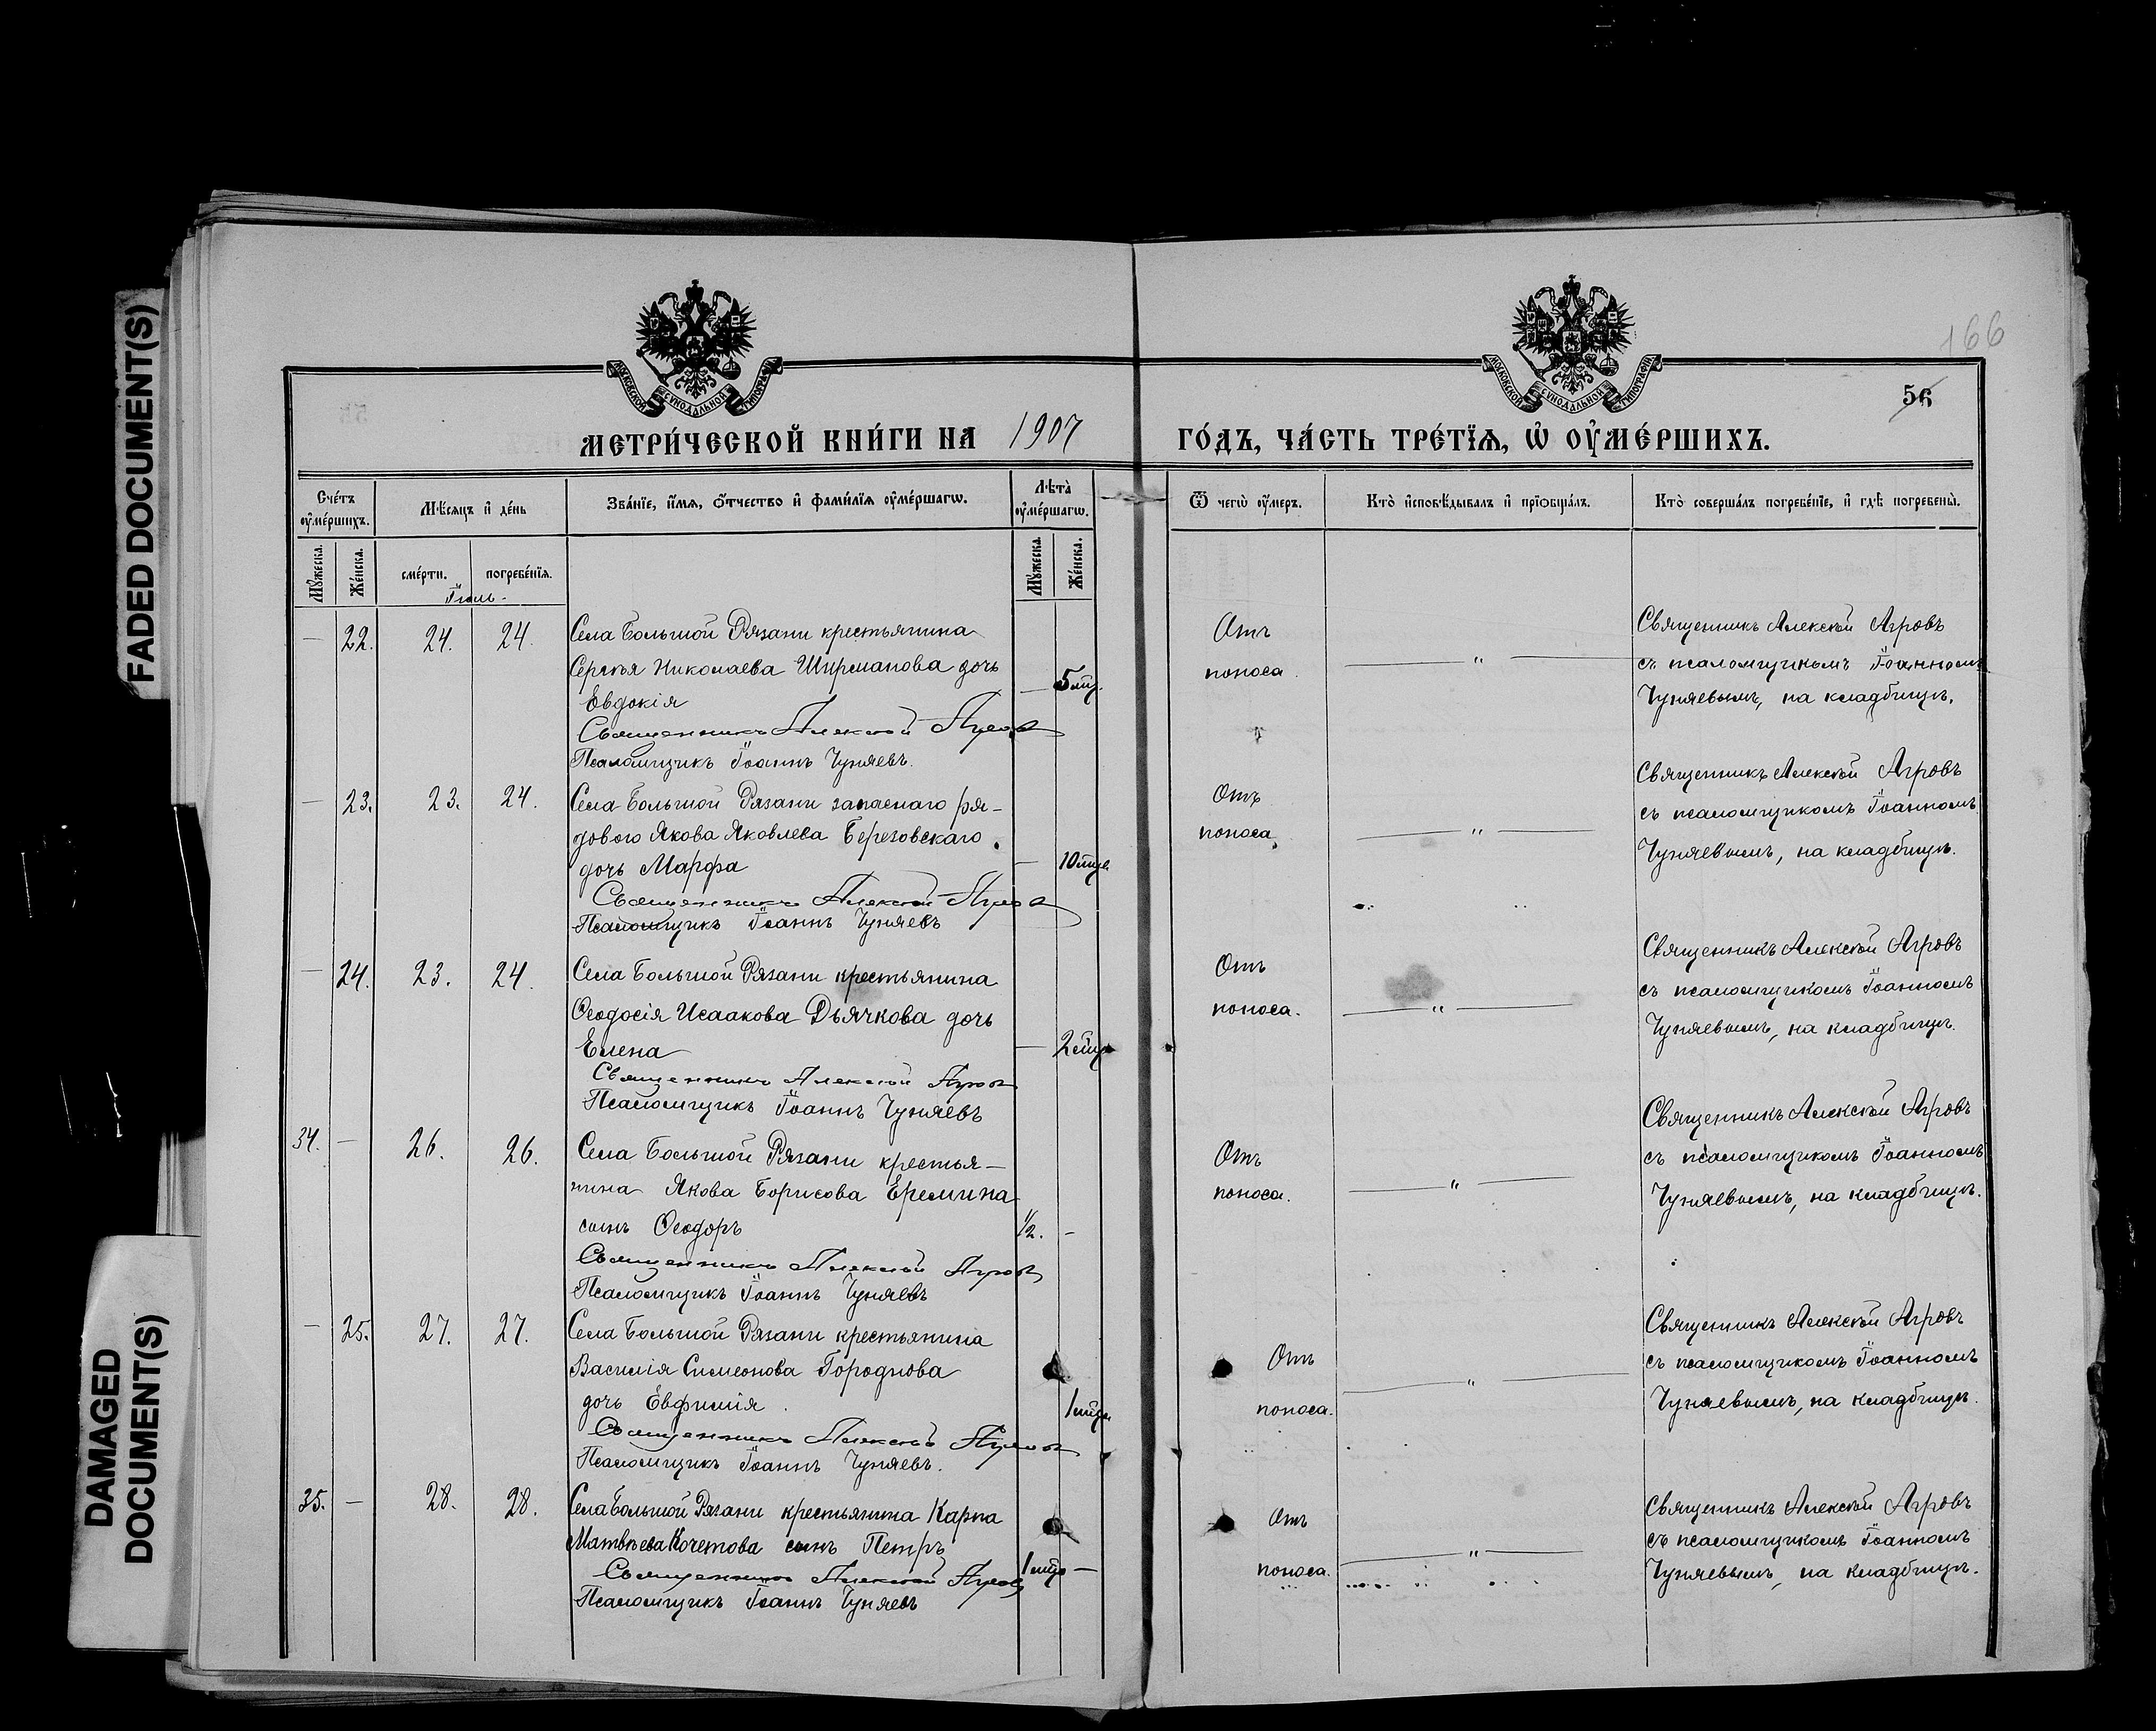 FADED DOCUMENT(S)
DAMAGED
DOCUMENT(S)
166
56
МОСКОВСКОЙ СѴНОДАЛЬНОЙ ТИПОГРАФІИ
МОСКОВСКОЙ СѴНОДАЛЬНОЙ ТИПОГРАФІИ
МЕТРИ́ЧЕСКОЙ КНИ́ГИ НА 1907 ГО́ДЪ, ЧА́СТЬ ТРЕ́ТЇѦ, Ѡ҆ ОУ҆МЕ́РШИХЪ.
Сче́тъ оу҆ме́ршихъ.
Мѣ́сяцъ и҆ де́нь
Зва́нїе, и҆́мѧ, ѻ҆́тчество и҆ фами́лїѧ оу҆ме́ршагѡ.
Лѣта̀ оу҆ме́ршагѡ.
Ѿ чегѡ̀ оу҆́меръ.
Кто̀ и҆сповѣ́дывалъ и҆ прїѡбща́лъ.
Кто̀ соверша́лъ погребе́нїе, и҆ гдѣ̀ погребены̀.
Мꙋ́жеска.
Же́нска.
сме́рти.
погребе́нїѧ.
Мꙋ́жеска.
Же́нска.
Іюль -
— 22. 24. 24. Села Большой Рязани крестьянина
Сергѣя Николаева Ширманова дочь
Евдокія — 5 мц.
Священникъ Алексѣй Агровъ
Псаломщикъ Іоаннъ Чуняевъ.
Отъ
поноса.
— " —
Священникъ Алексѣй Агровъ
съ псаломщикомъ Іоанномъ
Чуняевымъ, на кладбищѣ.
— 23. 23. 24. Села Большой Рязани запаснаго ря-
дового Якова Яковлева Березовскаго
дочь Марфа — 10 мце
Священникъ Алексѣй Агровъ
Псаломщикъ Іоаннъ Чуняевъ
Отъ
поноса
— " —
Священникъ Алексѣй Агровъ
съ псаломщикомъ Іоанномъ
Чуняевымъ, на кладбищѣ.
— 24. 23. 24. Села Большой Рязани крестьянина
Ѳеодосія Исаакова Дьячкова дочь
Елена — 2
Священникъ Алексѣй Агровъ
Псаломщикъ Іоаннъ Чуняевъ
Отъ
поноса.
— " —
Священникъ Алексѣй Агровъ
съ псаломщикомъ Іоанномъ
Чуняевымъ, на кладбищѣ.
34. — 26. 26. Села Большой Рязани крестья-
нина Якова Борисова Еремина
сынъ Ѳеодоръ 1/2. -
Священникъ Алексѣй Агровъ
Псаломщикъ Іоаннъ Чуняевъ
Отъ
поноса.
— " —
Священникъ Алексѣй Агровъ
съ псаломщикомъ Іоанномъ
Чуняевымъ, на кладбищѣ.
— 25. 27. 27. Села Большой Рязани крестьянина
Василія Симеонова Городнова
дочь Евфимія. 1
Священникъ Алексѣй Агровъ
Псаломщикъ Іоаннъ Чуняевъ.
Отъ
поноса.
— " —
Священникъ Алексѣй Агровъ
съ псаломщикомъ Іоанномъ
Чуняевымъ, на кладбищѣ.
35. — 28. 28. Села Большой Рязани крестьянина Карпа
Матвѣева Кочетова сынъ Петръ
1 —
Священникъ Алексѣй Агровъ
Псаломщикъ Іоаннъ Чуняевъ
Отъ
поноса.
— " —
Священникъ Алексѣй Агровъ
съ псаломщикомъ Іоанномъ
Чуняевымъ, на кладбищѣ.